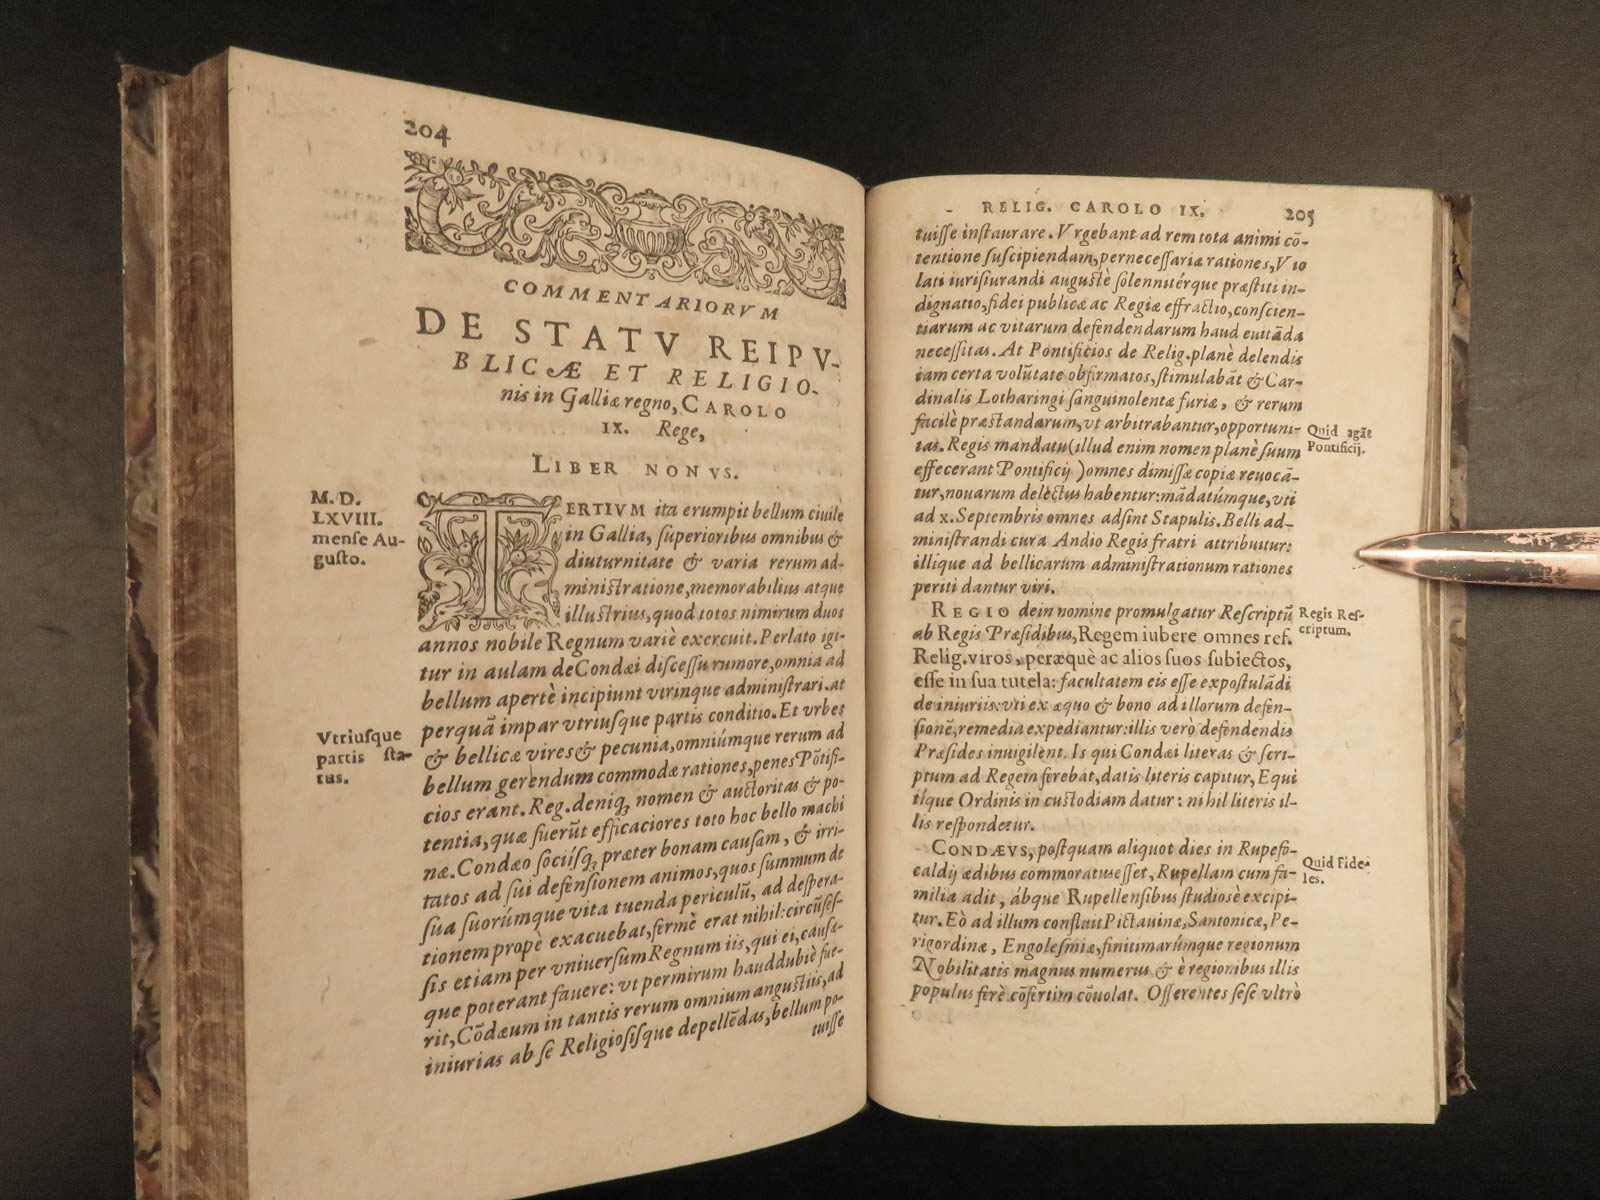 204
COMMENTARIORVM
DE STATV REIPV-
BLICÆ ET RELIGIO-
nis in Galliæ regno, CAROLO
IX. Rege,
LIBER NONVS.
M. D.
LXVIII.
mense Au-
gusto.
TERTIVM ita erumpit bellum ciuile
in Gallia, superioribus omnibus &
diuturnitate & varia rerum ad-
ministratione, memorabilius atque
illustrius, quod totos nimirum duos
annos nobile Regnum variè exercuit. Perlato igi-
tur in aulam de Condæi discessu rumore, omnia ad
bellum apertè incipiunt vtrinque administrari. at
perquā impar vtriusque partis conditio. Et vrbes
Vtriusque
partis sta-
tus.
& bellicæ vires & pecunia, omniúmque rerum ad
bellum gerendum commodæ rationes, penes Pōtifi-
cios erant. Reg. deniq; nomen & auctoritas & po-
tentia, quæ fuerūt efficaciores toto hoc bello machi
næ. Condæo sociísq; præter bonam causam, & irri-
tatos ad sui defensionem animos, quos summum de
sua suorúmque vita tuenda periculū, ad despera-
tionem propè exacuebat, fermè erat nihil: circūses-
sis etiam per vniuersum Regnum iis, qui ei, causæ-
que poterant fauere: vt permirum haud dubiè fue-
rit, Cōdæum in tantis rerum omnium angustiis, ad
iniurias ab se Religiosisque depellēdas, bellum po-
tuisse
RELIG. CAROLO IX. 205
tuisse instaurare. Vrgebant ad rem tota animi cō-
tentione suscipiendam, pernecessariæ rationes, Vio
lati iurisiurandi augustè solennitérque præstiti in-
dignatio, fidei publicæ ac Regiæ effractio, conscien-
tiarum ac vitarum defendendarum haud euitāda
necessitas. At Pontificios de Relig. planè delendis
iam certa volūtate obfirmatos, stimulabāt & Car-
dinalis Lotharingi sanguinolentæ furiæ, & rerum
facilè præstandarum, vt arbitrabantur, opportuni-
tas. Regis mandatu (illud enim nomen planè suum
Quid agāt
Pontificij.
effecerant Pontificij) omnes dimissæ copiæ reuocā-
tur, nouarum delectus habentur: mādatúmque, vti
ad x. Septembris omnes adsint Stapulis. Belli ad-
ministrandi cura Andio Regis fratri attribuitur:
illique ad bellicarum administrationum rationes
periti dantur viri.
REGIO dein nomine promulgatur Rescriptū
Regis Res-
criptum.
ab Regis Præsidibus, Regem iubere omnes ref.
Relig. viros, peræquè ac alios suos subiectos,
esse in sua tutela: facultatem eis esse expostulādi
de iniuriis: vti ex æquo & bono ad illorum defen-
sionē, remedia expediantur: illis verò defendendis
Præsides inuigilent. Is qui Condæi literas & scri-
ptum ad Regem ferebat, datis literis capitur, Equi
tíque Ordinis in custodiam datur: nihil literis il-
lis respondetur.
CONDÆVS, postquam aliquot dies in Rupefo-
Quid Fide-
les.
caldij ædibus commoratus esset, Rupellam cum fa-
milia adit, ábque Rupellensibus studiosè excipi-
tur. Eò ad illum confluit Pictauinæ, Santonicæ, Pe-
rigordinæ, Engolesmiæ, finitimarúmque regionum
Nobilitatis magnus numerus & è regionibus illis
populus ferè cōfertim cōuolat. Offerentes sese vltrò